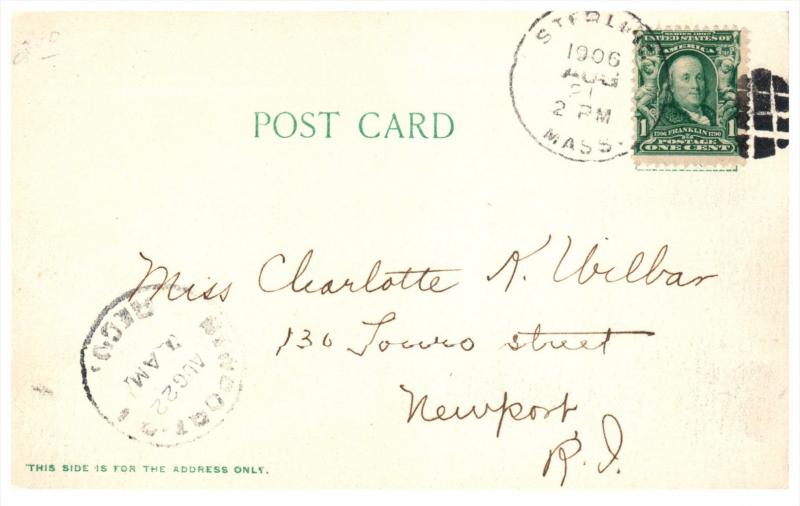 POST CARD
STERLING
1906
AUG
21
2 PM
MASS.
SERIES 1902
UNITED STATES OF
AMERICA
1 1706 FRANKLIN 1790 1
POSTAGE
ONE CENT
Miss Charlotte K. Wilbar
130 Touro street
Newport,
R.I.
REC'D.
AUG 22
AM
NEWPORT R.I.
THIS SIDE IS FOR THE ADDRESS ONLY.